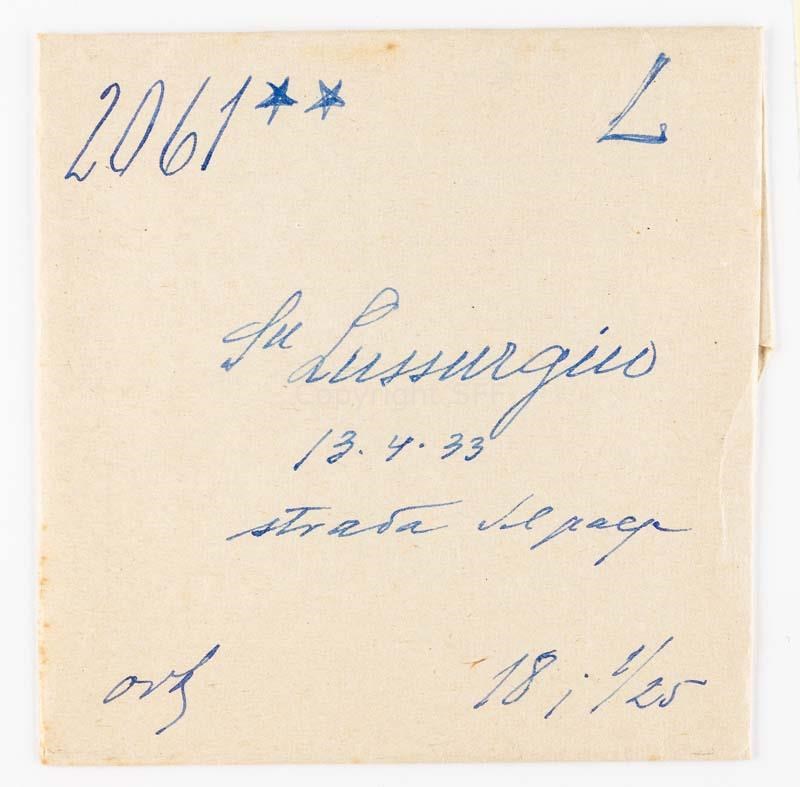 2061** L
Su Lussurgiu
13.4.33
strada del paese
ovh
18 ; 1/25
Copyright SFF